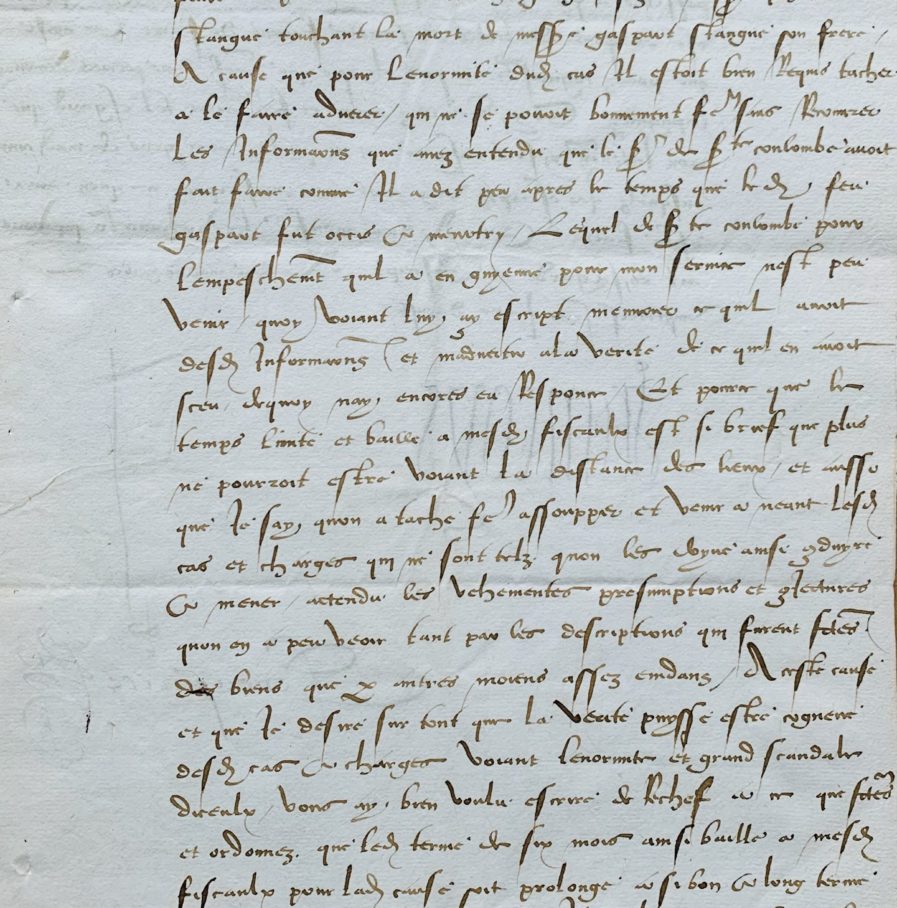 stangue touchant la mort de mess^e gaspart stangue son frere /
A cause que pour Lenormite dud cas Il estoit bien Requis tacher
a le faire adverer / qui ne se povoit bonnement fe^r sans Recouvrer
Les Informaons que avez entendu que le s^r de s^te coulombe avoit
fait faire comme Il a dit peu apres le temps que le d feu
gaspart fut occis & meurtry / Lequel de s^te coulombe pour
Lempeschem^t quil a en guyenne pour mon service nest peu
venir / quoy voiant luy ay escript menvoier ce quil avoit
desd Informaons et madvertir a la verite de ce quil en avoit
sceu / dequoy nay encores eu Responce / Et pource que le
temps limite et baille a mesd fiscaulx est si brief que plus
ne pourroit estre voiant la distance des lieux / et aussi
que Je say quon a tache fe^r assoupper et venir a neant Lesd
cas et charges qui ne sont telz quon les doyve ainsi conduyre
& mener / actendu les vehementes presumptions et conjectures
quon en a peu veoir tant par les descriptions qui furent fctes
des biens que p autres moiens assez evidans / A ceste cause
et que Je desire sur tout que la verite puysse estre cogneue
desd cas & charges voiant lenormite et grand scandale
diceulx / vous ay bien voulu escrire de Rechef a ce que fctes
et ordonnez que led terme de six mois ainsi baille a mesd
fiscaulx pour lad cause soit prolonge a si bon & long terme